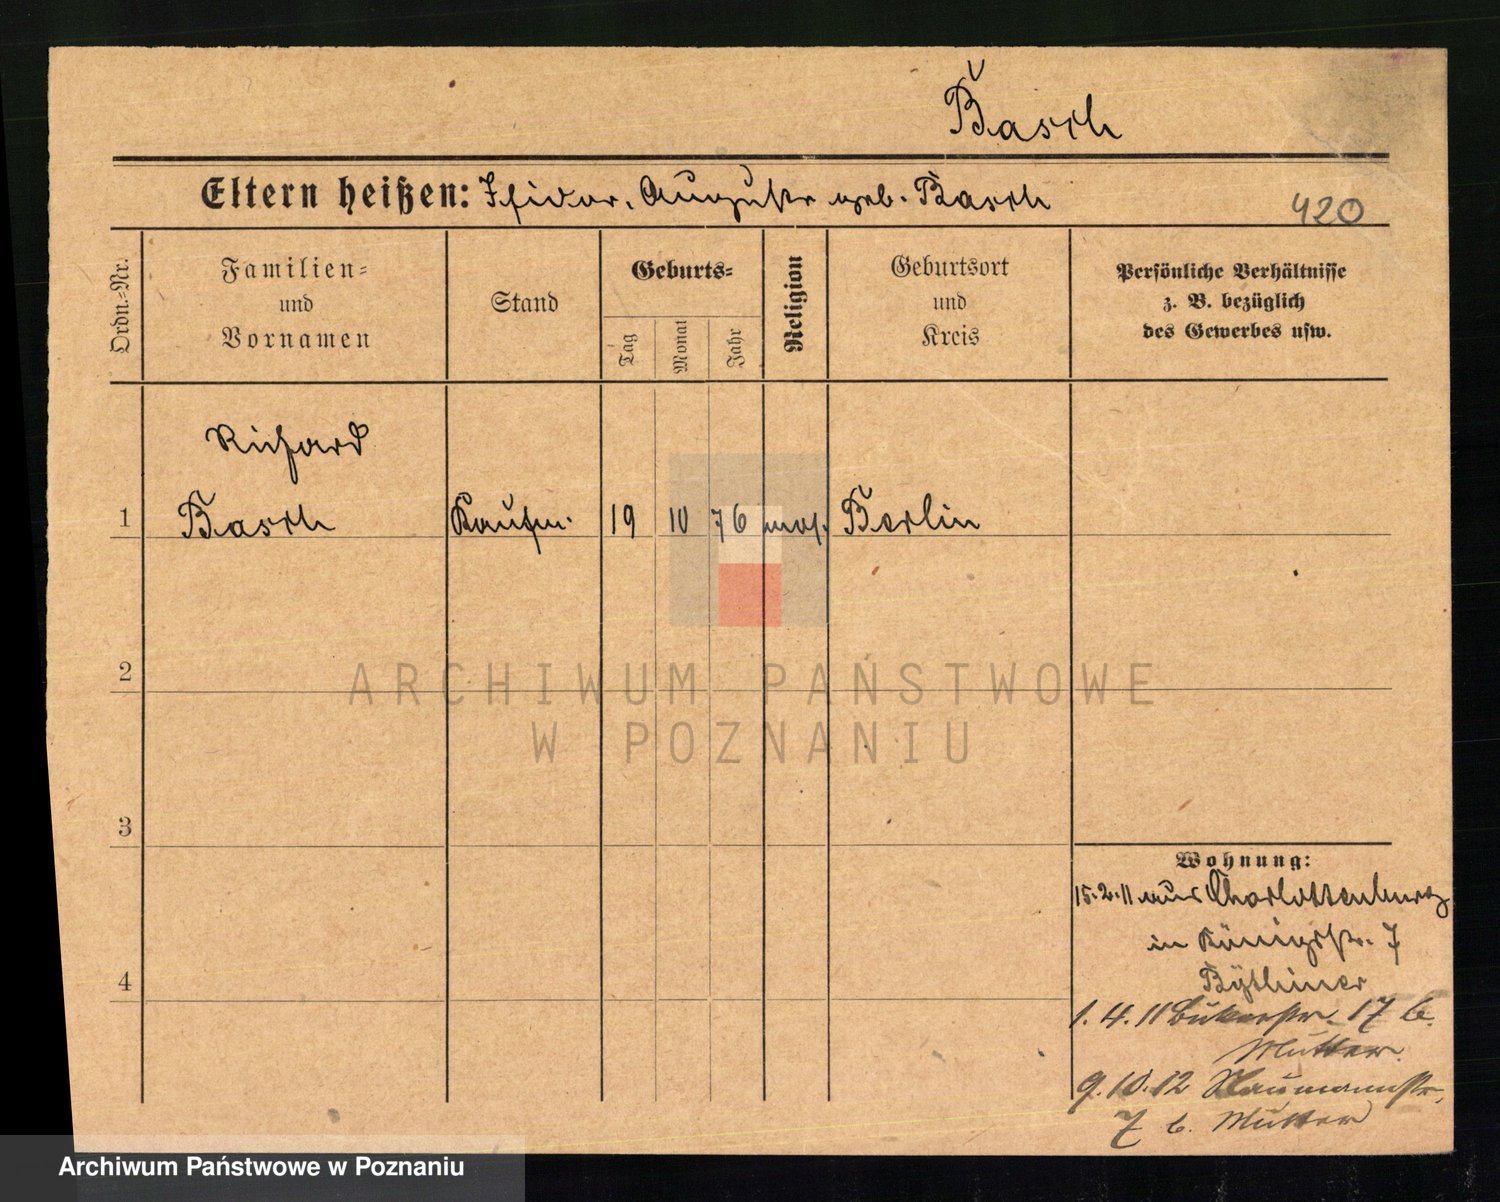 Basch
Eltern heißen: Isidor, Auguste geb. Basch
420
Ordn.-Nr.
Familien-
und
Vornamen
Stand
Geburts-
Tag
Monat
Jahr
Religion
Geburtsort
und
Kreis
Persönliche Verhältnisse
z. B. bezüglich
des Gewerbes usw.
Richard
1 Basch Kaufm. 19 10 76 mos. Berlin
2
3
4
Wohnung:
15.2.11 aus Charlottenburg
in Königstr. 7
1.4.11 Bukerstr. 17 b.
Mutter
9.10.12 Naumannstr.
7 b. Mutter
ARCHIWUM PAŃSTWOWE
W POZNANIU
Archiwum Państwowe w Poznaniu